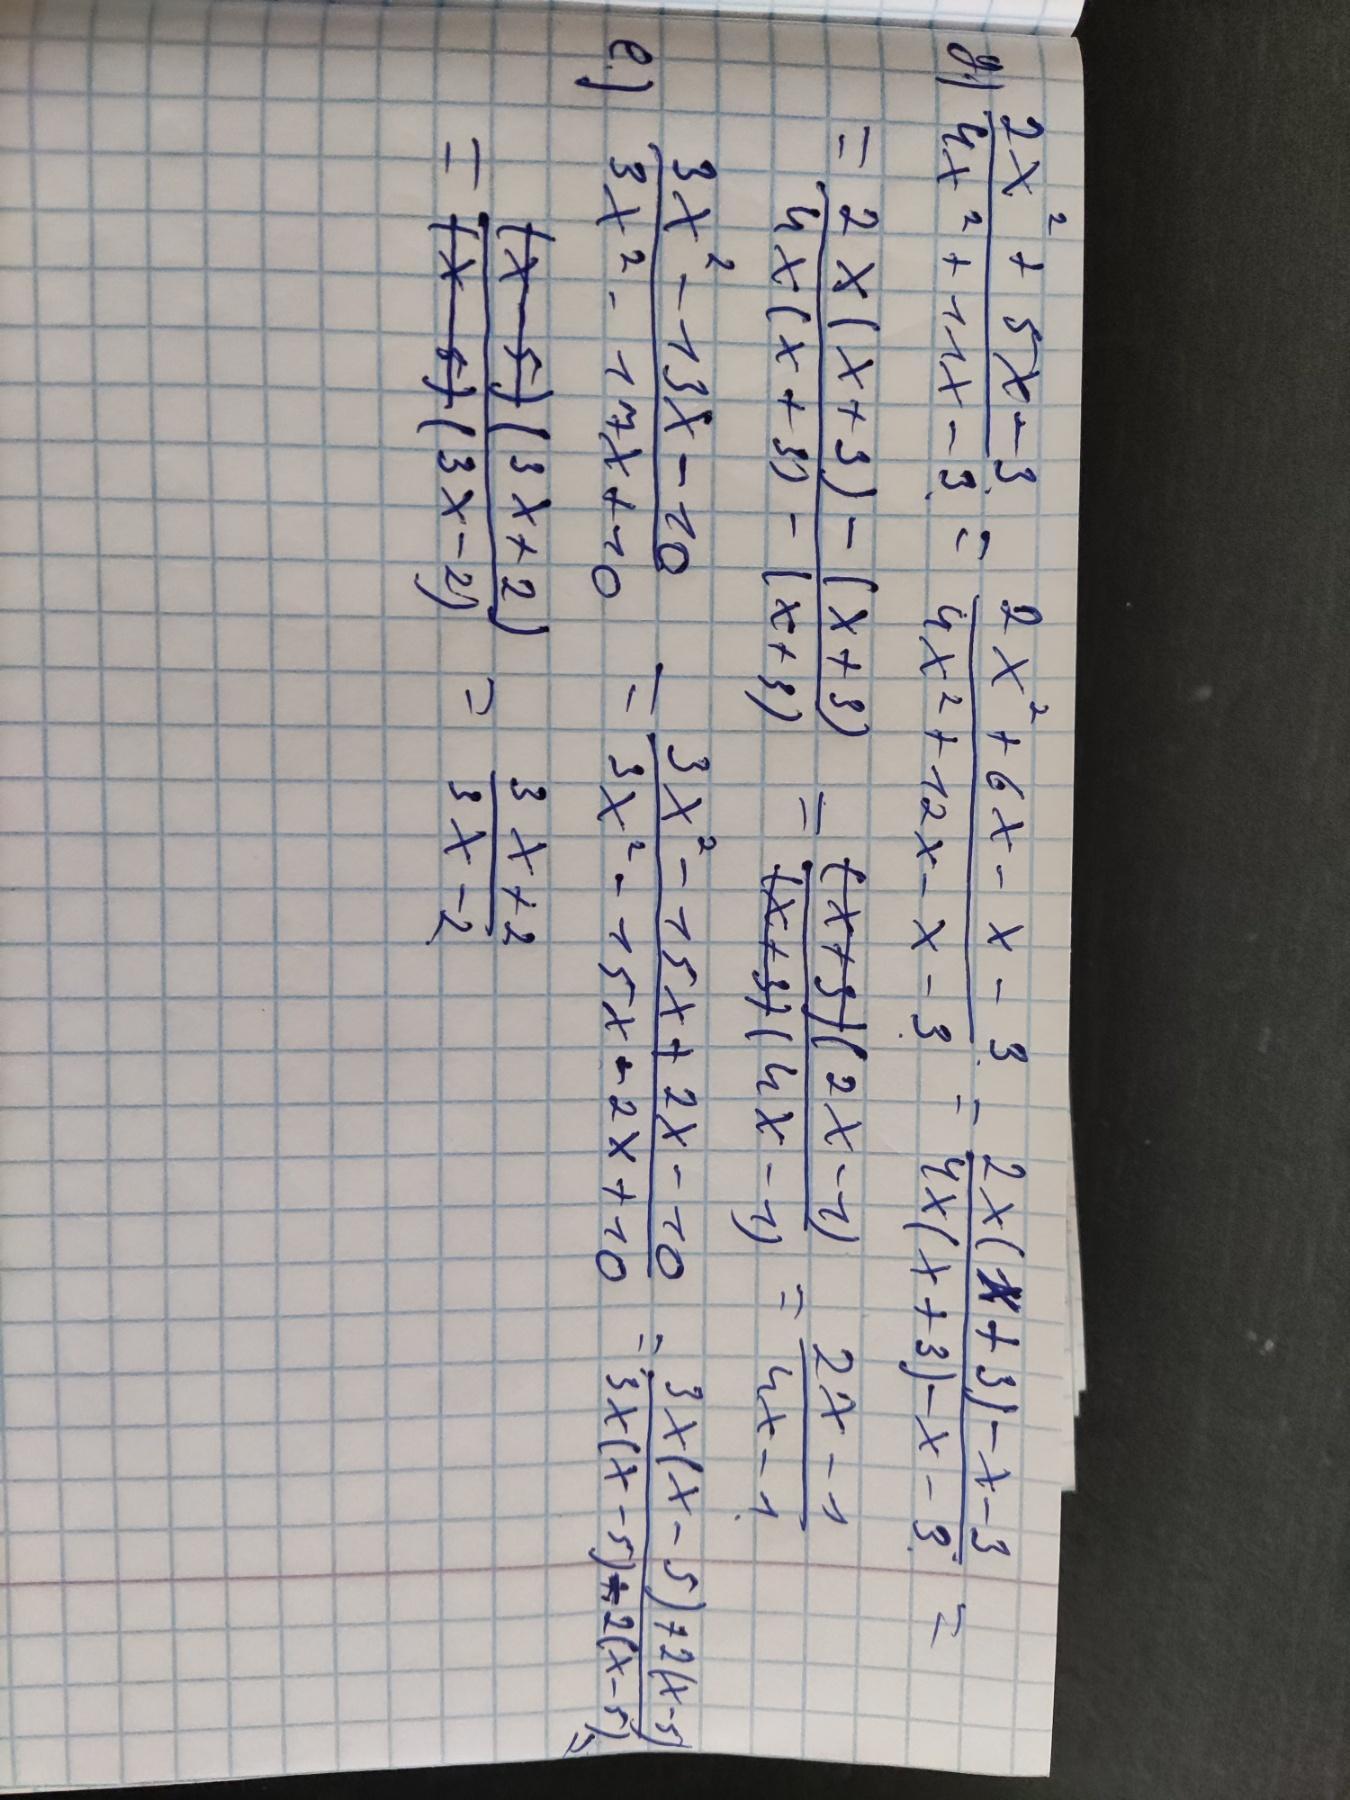 д) (2x² + 5x - 3)/(4x² + 11x - 3) = (2x² + 6x - x - 3)/(4x² + 12x - x - 3) = (2x(x+3) - x - 3)/(4x(x+3) - x - 3) =
= (2x(x+3) - (x+3))/(4x(x+3) - (x+3)) = ((x+3)(2x-1))/((x+3)(4x-1)) = (2x-1)/(4x-1)
е) (3x² - 13x - 10)/(3x² - 17x + 10) = (3x² - 15x + 2x - 10)/(3x² - 15x - 2x + 10) = (3x(x-5) + 2(x-5))/(3x(x-5) - 2(x-5)) =
= ((x-5)(3x+2))/((x-5)(3x-2)) = (3x+2)/(3x-2)